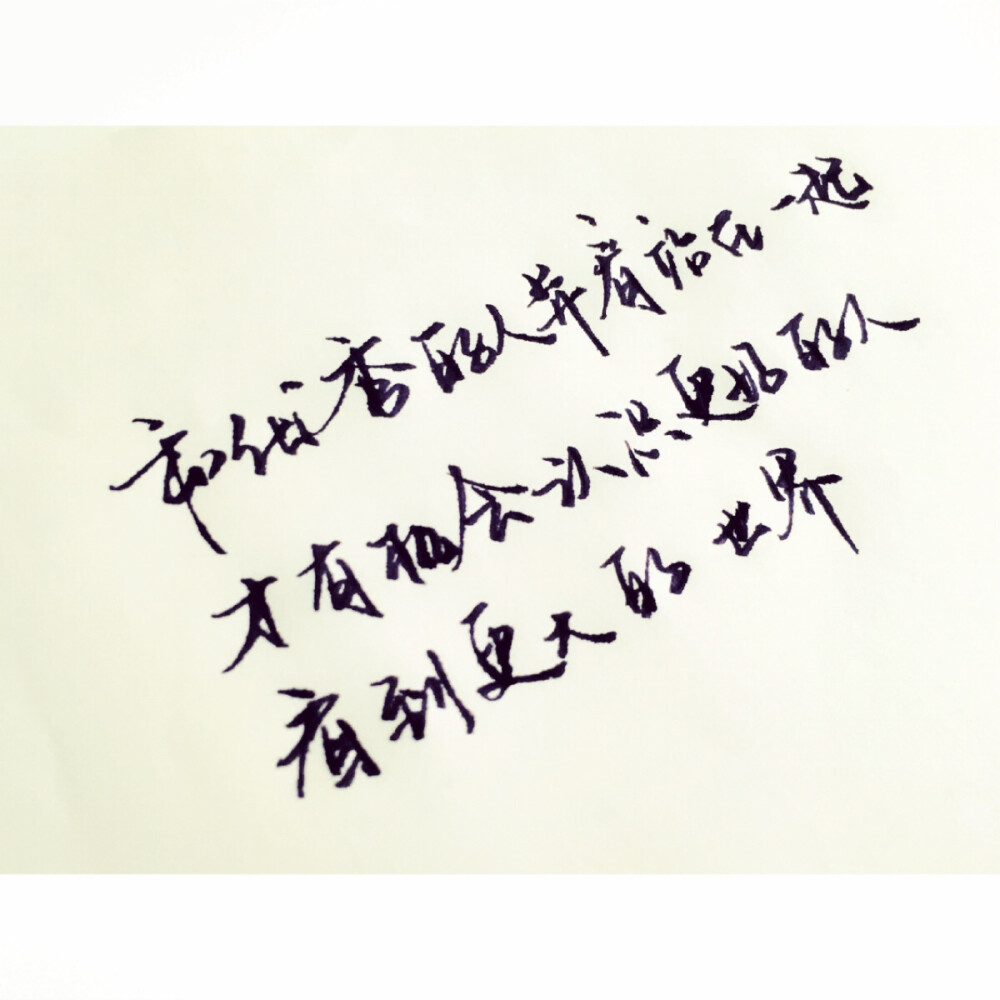 和优秀的人并肩站在一起
才有机会认识更好的人
看到更大的世界